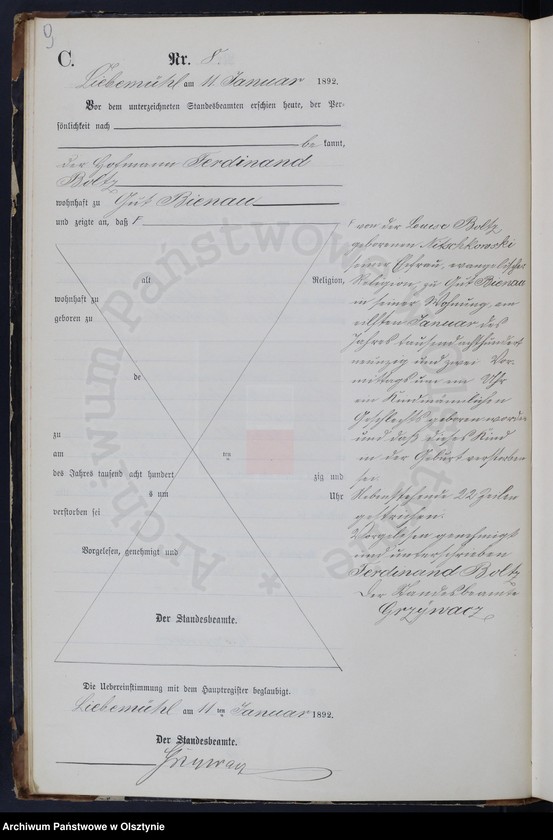 9
C.
Nr. 8.
Liebemühl am 11. Januar 1892.
Vor dem unterzeichneten Standesbeamten erschien heute, der Per-
sönlichkeit nach
be kannt,
der Hofmann Ferdinand
Boltz
wohnhaft zu Gut Bienau
und zeigte an, daß
alt Religion,
wohnhaft zu
geboren zu
de
zu
am ten
des Jahres tausend acht hundert zig und
s um Uhr
verstorben sei
Vorgelesen, genehmigt und
Der Standesbeamte.
Die Uebereinstimmung mit dem Hauptregister beglaubigt.
Liebemühl am 11 ten Januar 1892.
Der Standesbeamte.
Grzywacz
von der Louise Boltz
geborenen Nitschkowski
seiner Ehefrau, evangelischer
Religion, zu Gut Bienau
in seiner Wohnung, am
elften Januar des
Jahres tausend achthundert
neunzig und zwei Vor-
mittags um ein Uhr
ein Kind männlichen
Geschlechts geboren worden
und daß dieses Kind
in der Geburt verstorben
sei.
Nebenstehende 22 Zeilen
gestrichen.
Vorgelesen genehmigt
und unterschrieben
Ferdinand Boltz
Der Standesbeamte
Grzywacz
Archiwum Państwowe w Olsztynie
Archiwum Państwowe w Olsztynie